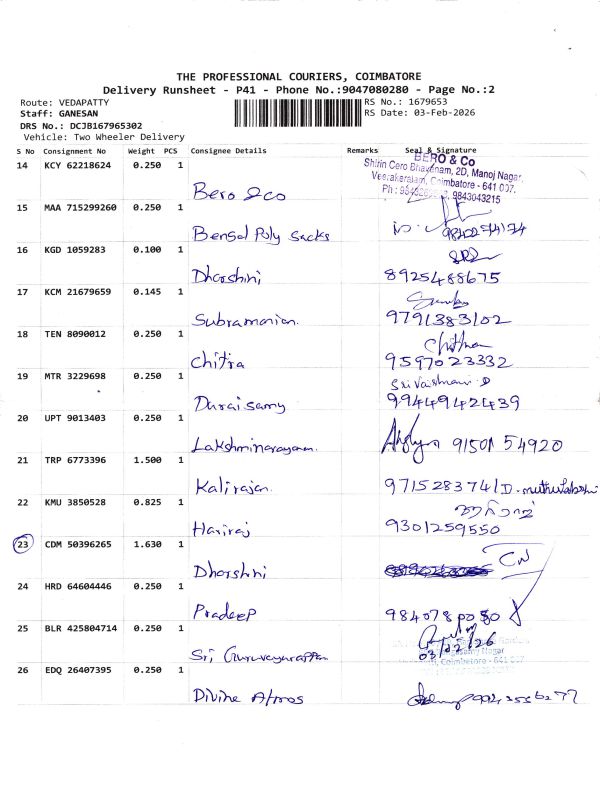 THE PROFESSIONAL COURIERS, COIMBATORE
Delivery Runsheet - P41 - Phone No.:9047080280 - Page No.:2
Route: VEDAPATTY
Staff: GANESAN
DRS No.: DCJB167965302
Vehicle: Two Wheeler Delivery
RS No.: 1679653
RS Date: 03-Feb-2026
S No Consignment No Weight PCS Consignee Details Remarks Seal & Signature
14 KCY 62218624 0.250 1
BERO & Co
Shirin Cero Bhavanam, 2D, Manoj Nagar,
Veerakeralam, Coimbatore - 641 007.
9843043215
Bero & co
15 MAA 715299260 0.250 1
Bensal Poly Sacks
16 KGD 1059283 0.100 1
Dharshini 8925488675
17 KCM 21679659 0.145 1
Subramanian. 9791383102
18 TEN 8090012 0.250 1
Chitra
Chitra 9597023332
19 MTR 3229698 0.250 1
Durai Samy 9944942439
20 UPT 9013403 0.250 1
Lakshminarayanan. 91501 54920
21 TRP 6773396 1.500 1
Kalirajan. 9715283741 D. muthulakshmi
22 KMU 3850528 0.825 1
Hariraj 9301259550
23 CDM 50396265 1.630 1
Dharshini
24 HRD 64604446 0.250 1
Pradeep 984078
25 BLR 425804714 0.250 1
03/02/26
Coimbatore - 641 007
Sri Guruvayurappan
26 EDQ 26407395 0.250 1
Divine Atmos